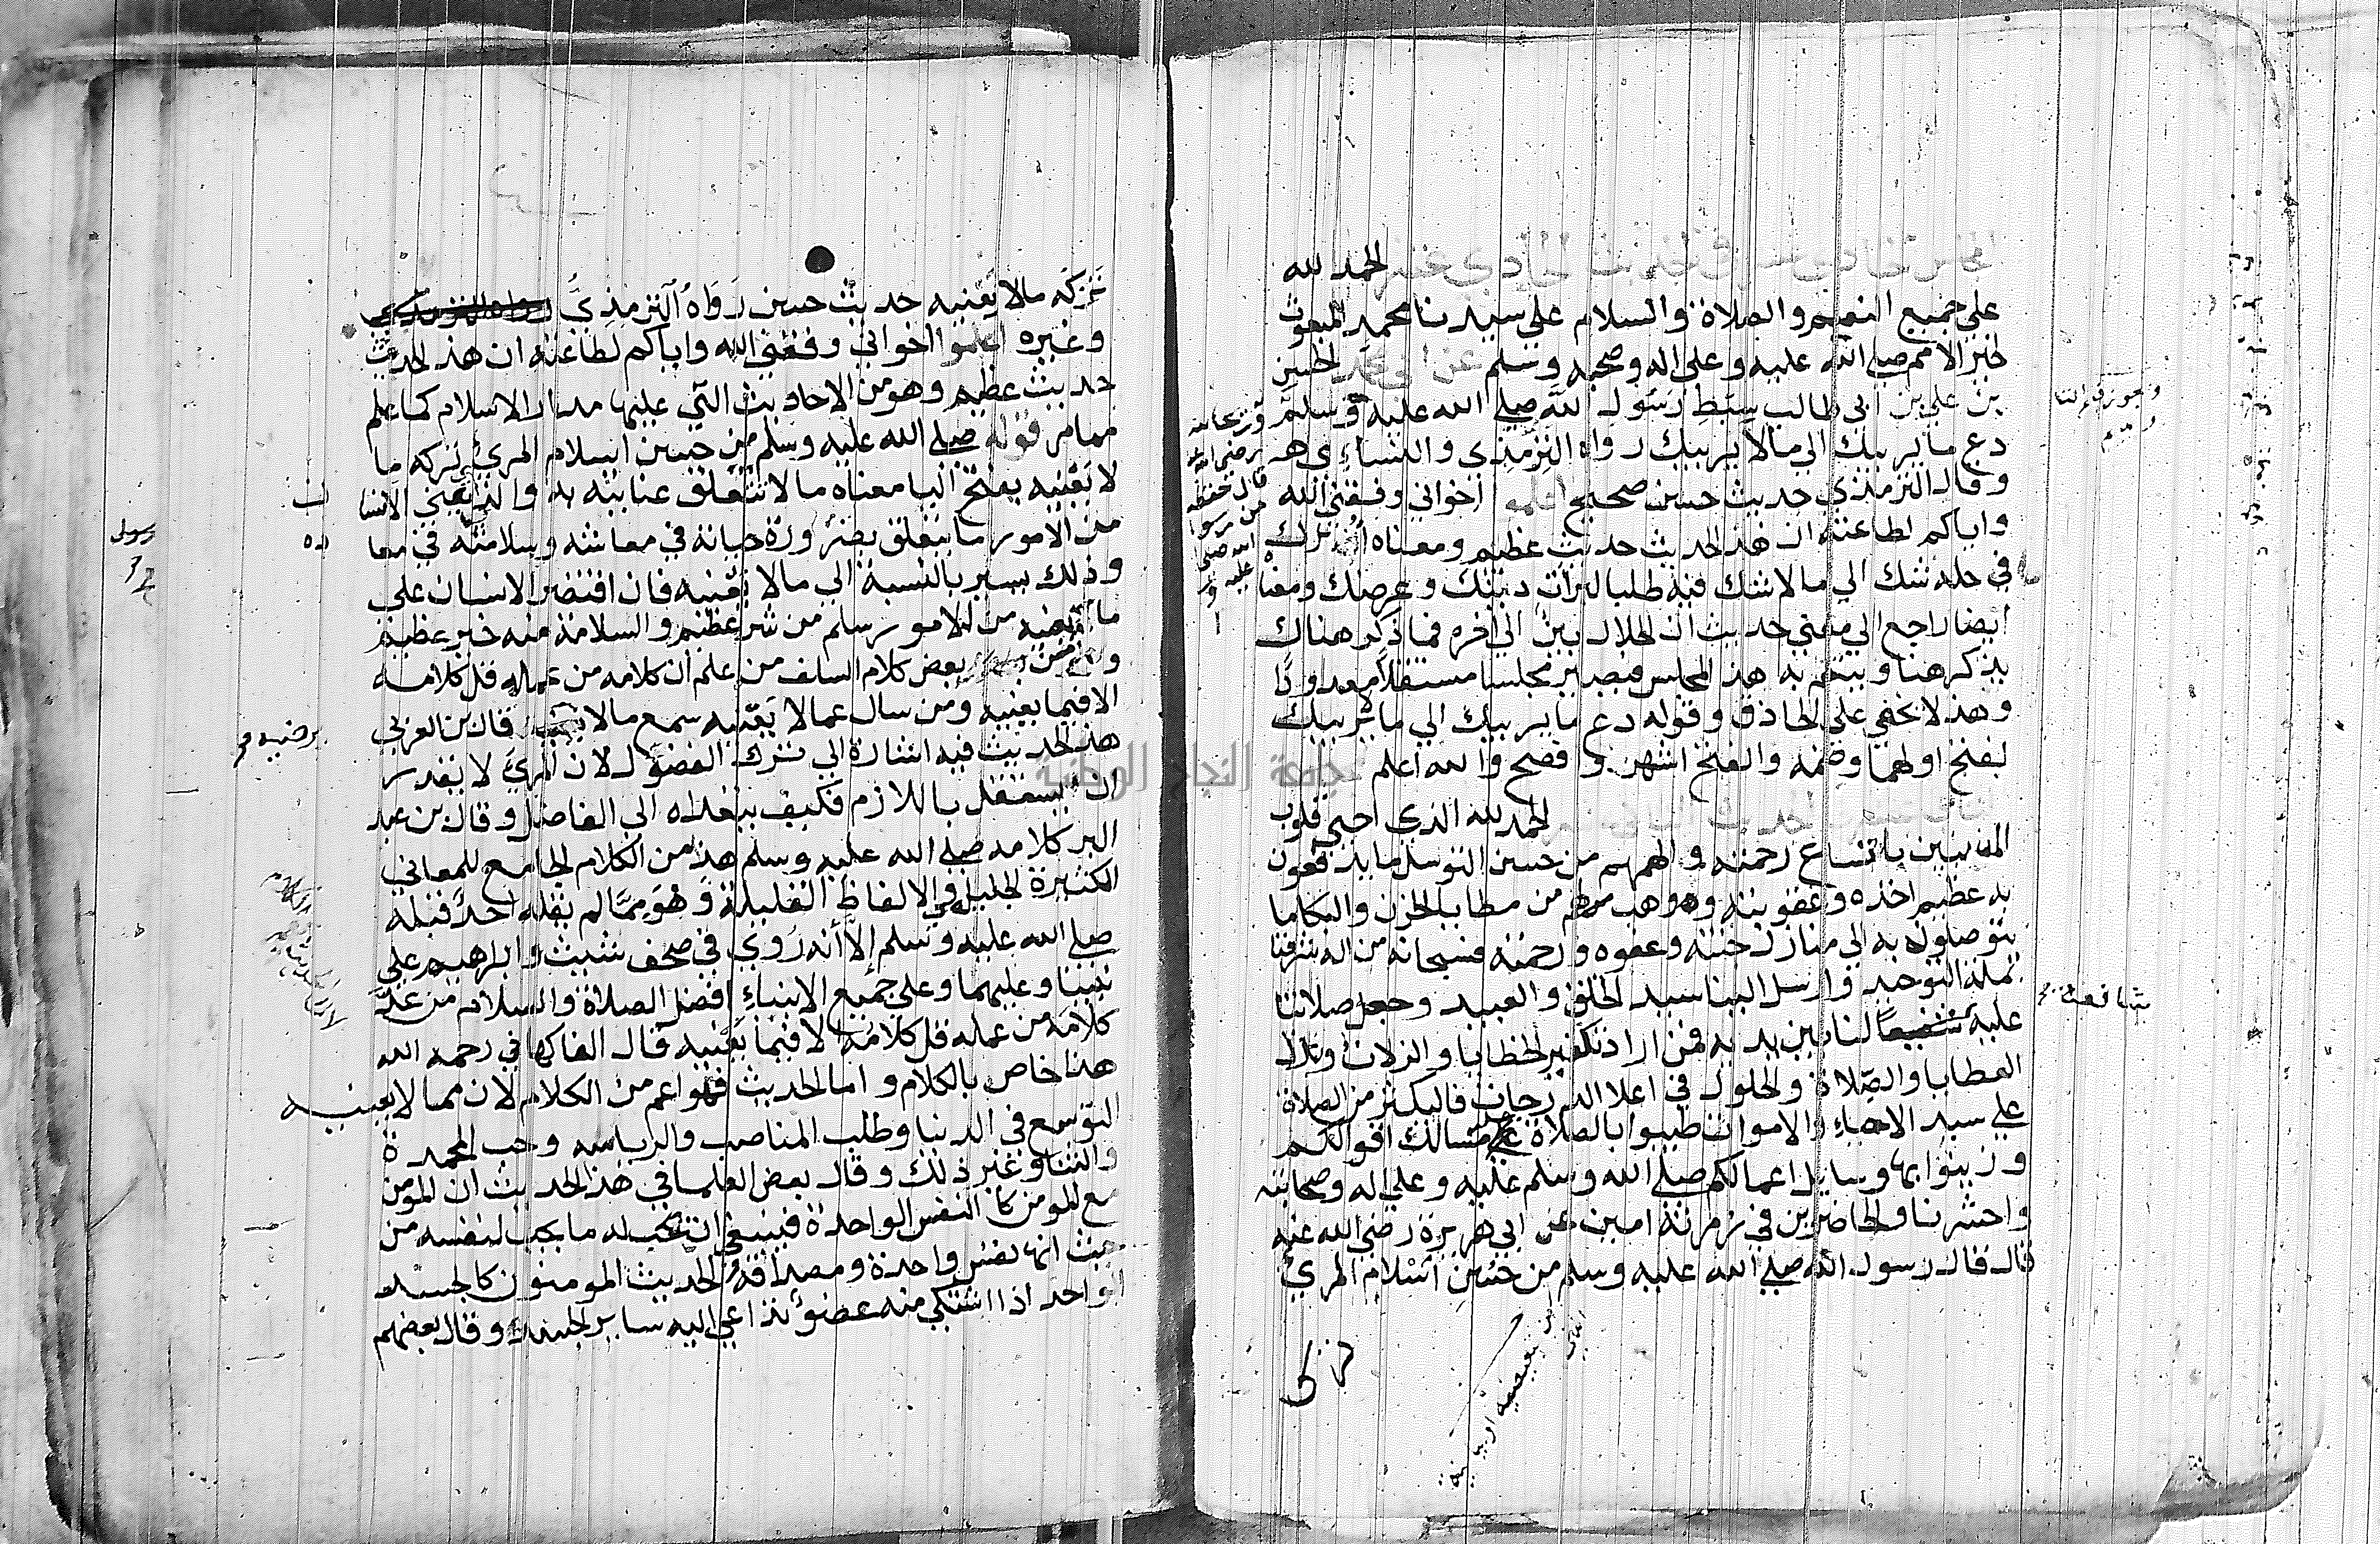 المجلس الحادي عشر في الحديث الحادي عشر الحمد لله
علي جميع النعم والصلاة والسلام علي سيدنا محمد المبعوث
لخير الامم صلي الله عليه وعلى اله وصحبه وسلم عن ابي محمد الحسن
بن علي بن ابي طالب سبط رسول الله صلي الله عليه وسلم
دع ما يريبك الي مالا يريبك رواه الترمذي والنساءي
وقال الترمذي حديث حسن صحيح اعلموا اخواني وفقني الله
واياكم لطاعته ان هذ الحديث حديث عظيم ومعناه ترك
في حله شك الي مالا شك فيه طلبا لبرات دينك وعرضك ومعنا
ايضا راجع الي معني حديث ان الحلال بين الي اخره فما ذكر هناك
يذكر هنا وينضم به هذ المجلس فيصير مجلسا مستقلا معدودا
وهذ لا يخفي علي الحاذق وقوله دع ما يريبك الي مالا يريبك
بفتح اولهما وضمه والفتح اشهر وافصح والله اعلم
الحمد لله الذي احيي قلوب
المذنبين باتساع رحمته والهمهم من حسن التوسل ما يدفعون
به عظيم اخذه وعقوبته ووهب من مطايا الحزن والبكا ما
يتوصلون به الي منازل جنته وعفوه ورحمته فسبحانه من اله شرفنا
بملة التوحيد وارسل الينا سيد الخلق والعبيد وجعل صلاتنا
عليه شفيعا لنا بين يديه فمن اراد تكفير الخطايا والزلات
العطايا والصلاة والحلول في اعلا الدرجات فاليكثر من الصلاة
علي سيد الاحياء والاموات طيبوا بالصلاة عليه مسالك اقوالكم
وزينوا بها وسايل اعمالكم صلي الله وسلم عليه وعلي اله وصحابته
واحشرنا والحاضرين في زمرته امين عن ابي هريرة رضي الله عنه
قال قال رسول الله صلي الله عليه وسلم من حسن اسلام المرئ
تركه مالا يعنيه حديث حسن رواه الترمذي
وغيره اعلموا اخواني وفقني الله واياكم لطاعته ان هذ الحديث
حديث عظيم وهو من الاحاديث التي عليها مدار الاسلام كما علم
مما مر قوله صلي الله عليه وسلم من حسن اسلام المرئ تركه ما
لا يعنيه بفتح اليا معناه ما لا تتعلق عنايته به والذي يعني الانسا
من الامور ما يتعلق بضرورة حياته في معاشه وسلامته في معا
وذلك يسير بالنسبة الي مالا يعنيه فان اقتصر الانسان علي
ما يعنيه من الامور سلم من شر عظيم والسلامة منه خير عظيم
ومن بعض كلام السلف من علم ان كلامه من عمله قل كلامه
الا فيما يعنيه ومن سال عما لا يعنيه سمع مالا قال بن العربي
هذ الحديث فيه اشارة الي ترك الفضول لان المرئ لا يقدر
ان يستقل باللازم فكيف يتعداه الي الفاضل وقال بن عبد
البر كلامه صلي الله عليه وسلم هذ من الكلام الجامع للمعاني
الكثيرة الجليلة في الالفاظ القليلة وهو مما لم يقله احد قبله
صلي الله عليه وسلم الا انه روي في صحف شيث وابراهيم علي
نبينا وعليهما وعلي جميع الانبياء افضل الصلاة والسلام من عد
كلامه من عمله قل كلامه الا فيما يعنيه قال الفاكهاني رحمه الله
هذا خاص بالكلام واما الحديث فهو اعم من الكلام لان مما لا يعنيه
التوسع في الدنيا وطلب المناصب والرياسه وحب المحمدة
والثنا وغير ذلك وقال بعض العلما في هذ الحديث ان المومن
مع المومن كا النفس الواحدة فينبغي ان يحب له ما يحب لنفسه من
حيث انها نفس واحدة ومصداقه الحديث المومنون كالجسد
الواحد اذا اشتكي منه عضو تداعي اليه ساير الجسد وقال بعضهم
جامعة النجاح الوطنية